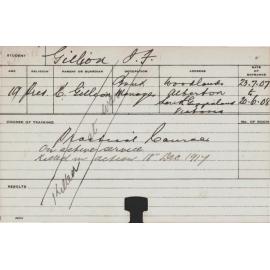 STUDENT Gillion, J. F.
AGE RELIGION PARENT OR GUARDIAN OCCUPATION ADDRESS DATE OF ENTRANCE
19 Pres. E. Gillion Manager Woodlands 23.7.07
Alberton to
20.6.08
Victoria
COURSE OF TRAINING NO. OF ROOM
Practical Course
On active service
Killed in action 18th Dec. 1917
Killed at
RESULTS